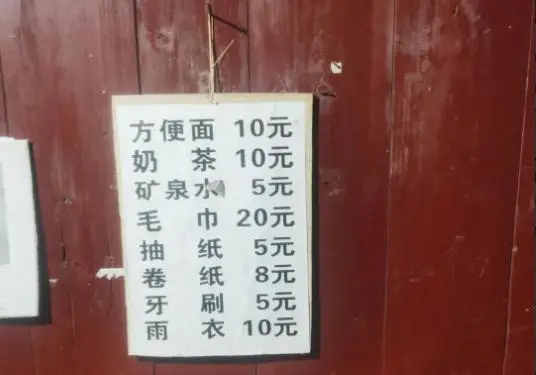 方便面 10元
奶茶 10元
矿泉水 5元
毛巾 20元
抽纸 5元
卷纸 8元
牙刷 5元
雨衣 10元